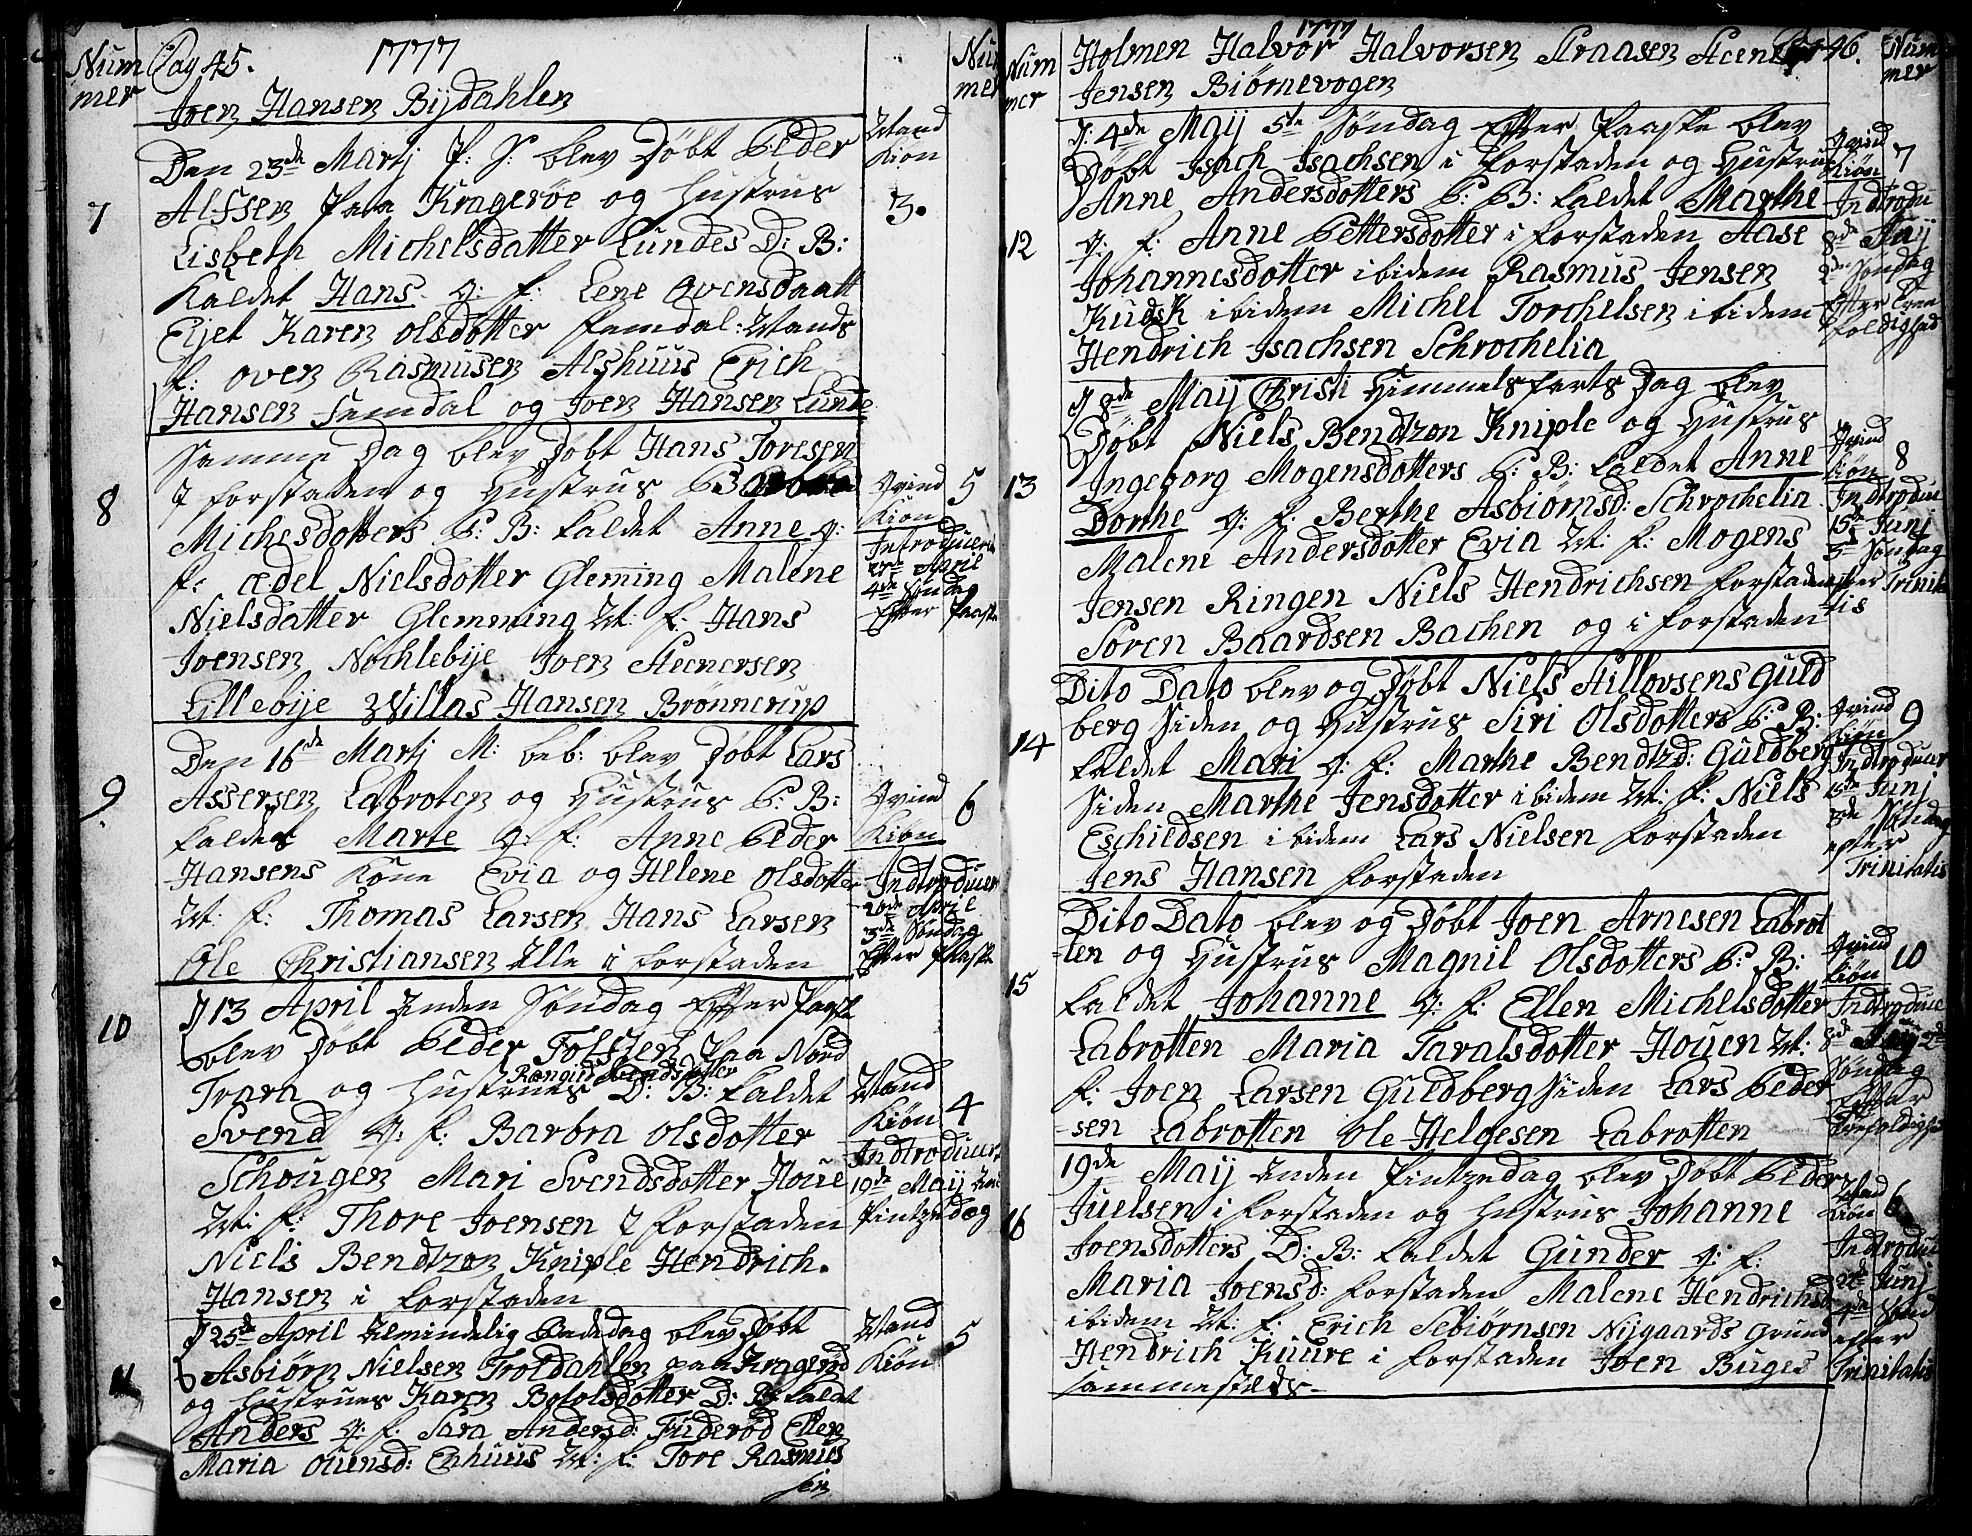 Num
mer
Pag 45.
1777
Num
mer
Joen Hansen Bijdahlen
Den 23de Martj P: S: blev Döbt Peder
Alfsen Paa Kragerøe og Hustrus
7
Lisbeth Michelsdatter Lundes D: B:
Kaldet Hans q: f: Lene Ovensdaatt
Eijet Karen Olsdotter Femdal: Mands
f: Oven Rasmusen Alshuus Erich
Hansen Femdal og Joen Hansen Lunde
Mand
Kiön
3.
Samme Dag blev Döbt Hans Toresen
I forstaden og Hustrus Barbra
8
Michelsdotters P: B: kaldet Anne q:
f: Ædel Nielsdotter Glemming Malene
Nielsdatter Glemming M: f: Hans
Joensen Nochlebije Joen Steenersen
Lillebije Willas Hansen Brönnerup
Qvind
Kiön
5
Introduceret
27de April
4de Söndag
Efter Paaske
Den 16de Martj M: beb: blev Döbt Lars
9.
Assersen Labroten og Hustrus P: B:
kaldet Marte q: f: Anne Peder
Hansens Kone Evia og Helene Olsdotter
M: f: Thomas Larsen Hans Larsen
Ole Christiansen Alle i forstaden
Qvind
Kiön
6
Indtroducer
20de April
3de Söndag
Efter Paaske
D 13 April Anden Söndag Efter Paaske
10
blev Döbt Peder Tolfsen Paa Nord
Rangild Svendsdotter
Trara og Hustrues D: B: kaldet
Svend q: f: Barbra Olsdotter
Schougen Mari Svendsdotter Houe
M: f: Thore Joensen I forstaden
Niels Bendtzon Kniple Hendrich
Hansen i forstaden
Mand
Kiön
4
Indtroducer
19de Maij Anden
Pintzedag
D 25de April Almindelig Bededag blev Döbt
11
Asbiørn Nielsen Troldahlen paa Kragerö
og Hustrues Karen Botolsdotter D: B: kaldt
Anders q: f: Sara Andersd: Fuderöd Ellen
Maria Ouensd: Enhuus M: f: Tore Rasmus
sen
Mand
Kiön
5
Num
mer
1777
Pag 46.
Num
mer
Holmen Halvor Halvorsen Straasen Steen
Jensen Biörnevogen
D: 4de Maij 5te Söndag Efter Paaske blev
Döbt Isach Isachsen i forstaden og Hustrus
Anne Andersdotters P: B: kaldet Marthe
12
q: f: Anne Pettersdotter i forstaden Aase
Johannesdotter ibidem Rasmus Jensen
Kudsk ibidem Michel Torchelsen ibidem
Hendrich Isachsen Schrochelia
Qvind
Kiön
7
Indtrodu
8de Maij
2den Söndag
Efter Tree
foldighed
D 8de Maij Christi Himmelsfarts Dag blev
Döbt Niels Bendtzon Kniple og Hustrus
13
Ingeborg Mogensdotters P: B: kaldet Anne
Dorthe q: f: Berthe Asbiörnsd: Schrochelia
Malene Andersdotter Evia M: f: Mogens
Jensen Ringen Niels Hendrichsen forstaden
Sören Baardsen Bachen og i forstaden
Qvind
Kiön
8
Indtroduc
15de Junj
3de Söndag
efter Trinita
tis
Dito Dato blev og Döbt Niels Stillovsens Guld
berg Siden og Hustrus Siri Olsdotters P: B:
14
kaldet Mari q: f: Marthe Bendtzd: Guldberg
Siden Marthe Jensdotter ibidem M: f: Niels
Eschildsen ibidem Lars Nielsen forstaden
Jens Hansen forstaden
Qvind
Kiön
9
Indtroducer
15de Junj
3de Söndag
efter
Trinitatis
Dito Dato blev og Döbt Joen Arnesen Labrot
-ten og Hustrus Magnil Olsdotters P: B:
15
kaldet Johanne q: f: Ellen Michelsdotter
Labrotten Maria Taralsdotter Houen M:
f: Joen Larsen Guldberg Siden Lars Peder
-sen Labrotten Ole Helgesen Labrotten
Qvind
Kiön
10
Indtroduc
8de 2de
Söndag
Efter
Trefoldighed
19de Maij Anden Pintzedag blev Döbt Peder
16
Juelsen i forstaden og Hustrus Johanne
Joensdotters D: B: kaldet Gunder q: f:
Maria Joensd: forstaden Malene Hendrichsd
ibidem M: f: Erich Sebiörnsen Nijgaards Grund
Hendrich Kuure i forstaden Joen Buges
sammesteds.
Mand
Kiön
6
Indtroduc
22de Junj
4de Sönd
efter
Trinitatis